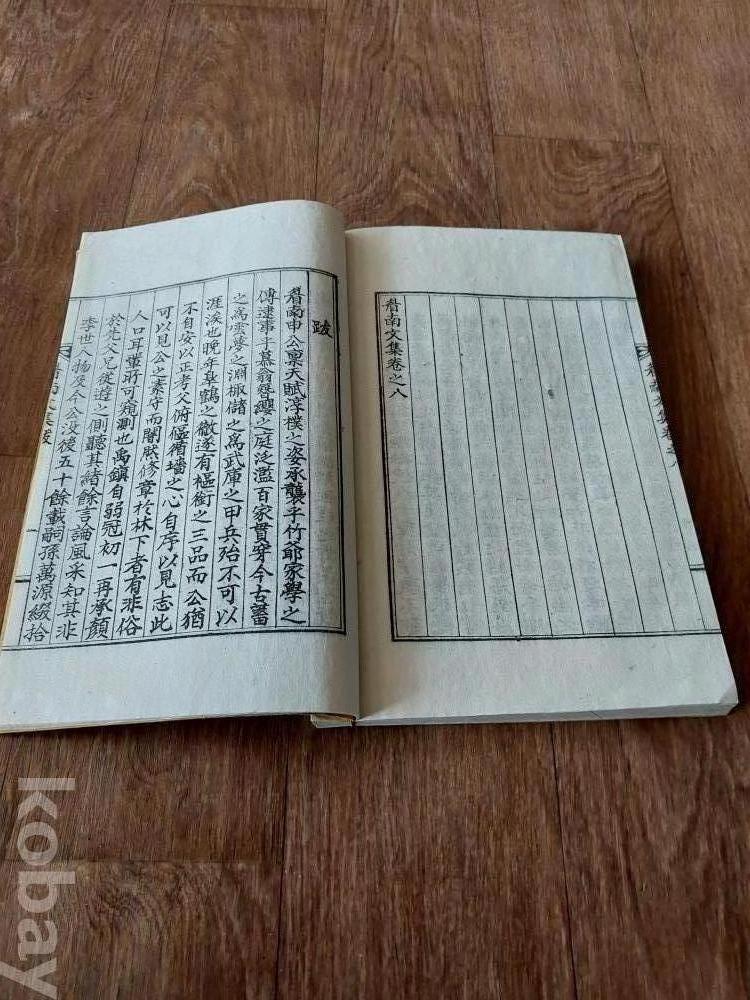 耆南文集卷之八
跋
耆南申公禀天賦淳樸之姿承襲乎竹爺家學之
傳逮事乎慕翁簪纓之庭泛濫百家貫穿今古蓄
之爲雲夢之淵椒儲之爲武庫之甲兵殆不可以
涯涘也晚年阜鶴之徹遂有樞銜之三品而公猶
不自安以正考父俯傴循墻之心自序以見志此
可以見公之素守而闇然修章於林下者有非俗
人口耳攉所可窺測也禹鎭自弱冠初一再承顏
於先父兄從遊之側聽其緖餘言論風采知其非
季世人物及今公沒後五十餘載嗣孫萬源綴拾
kobay